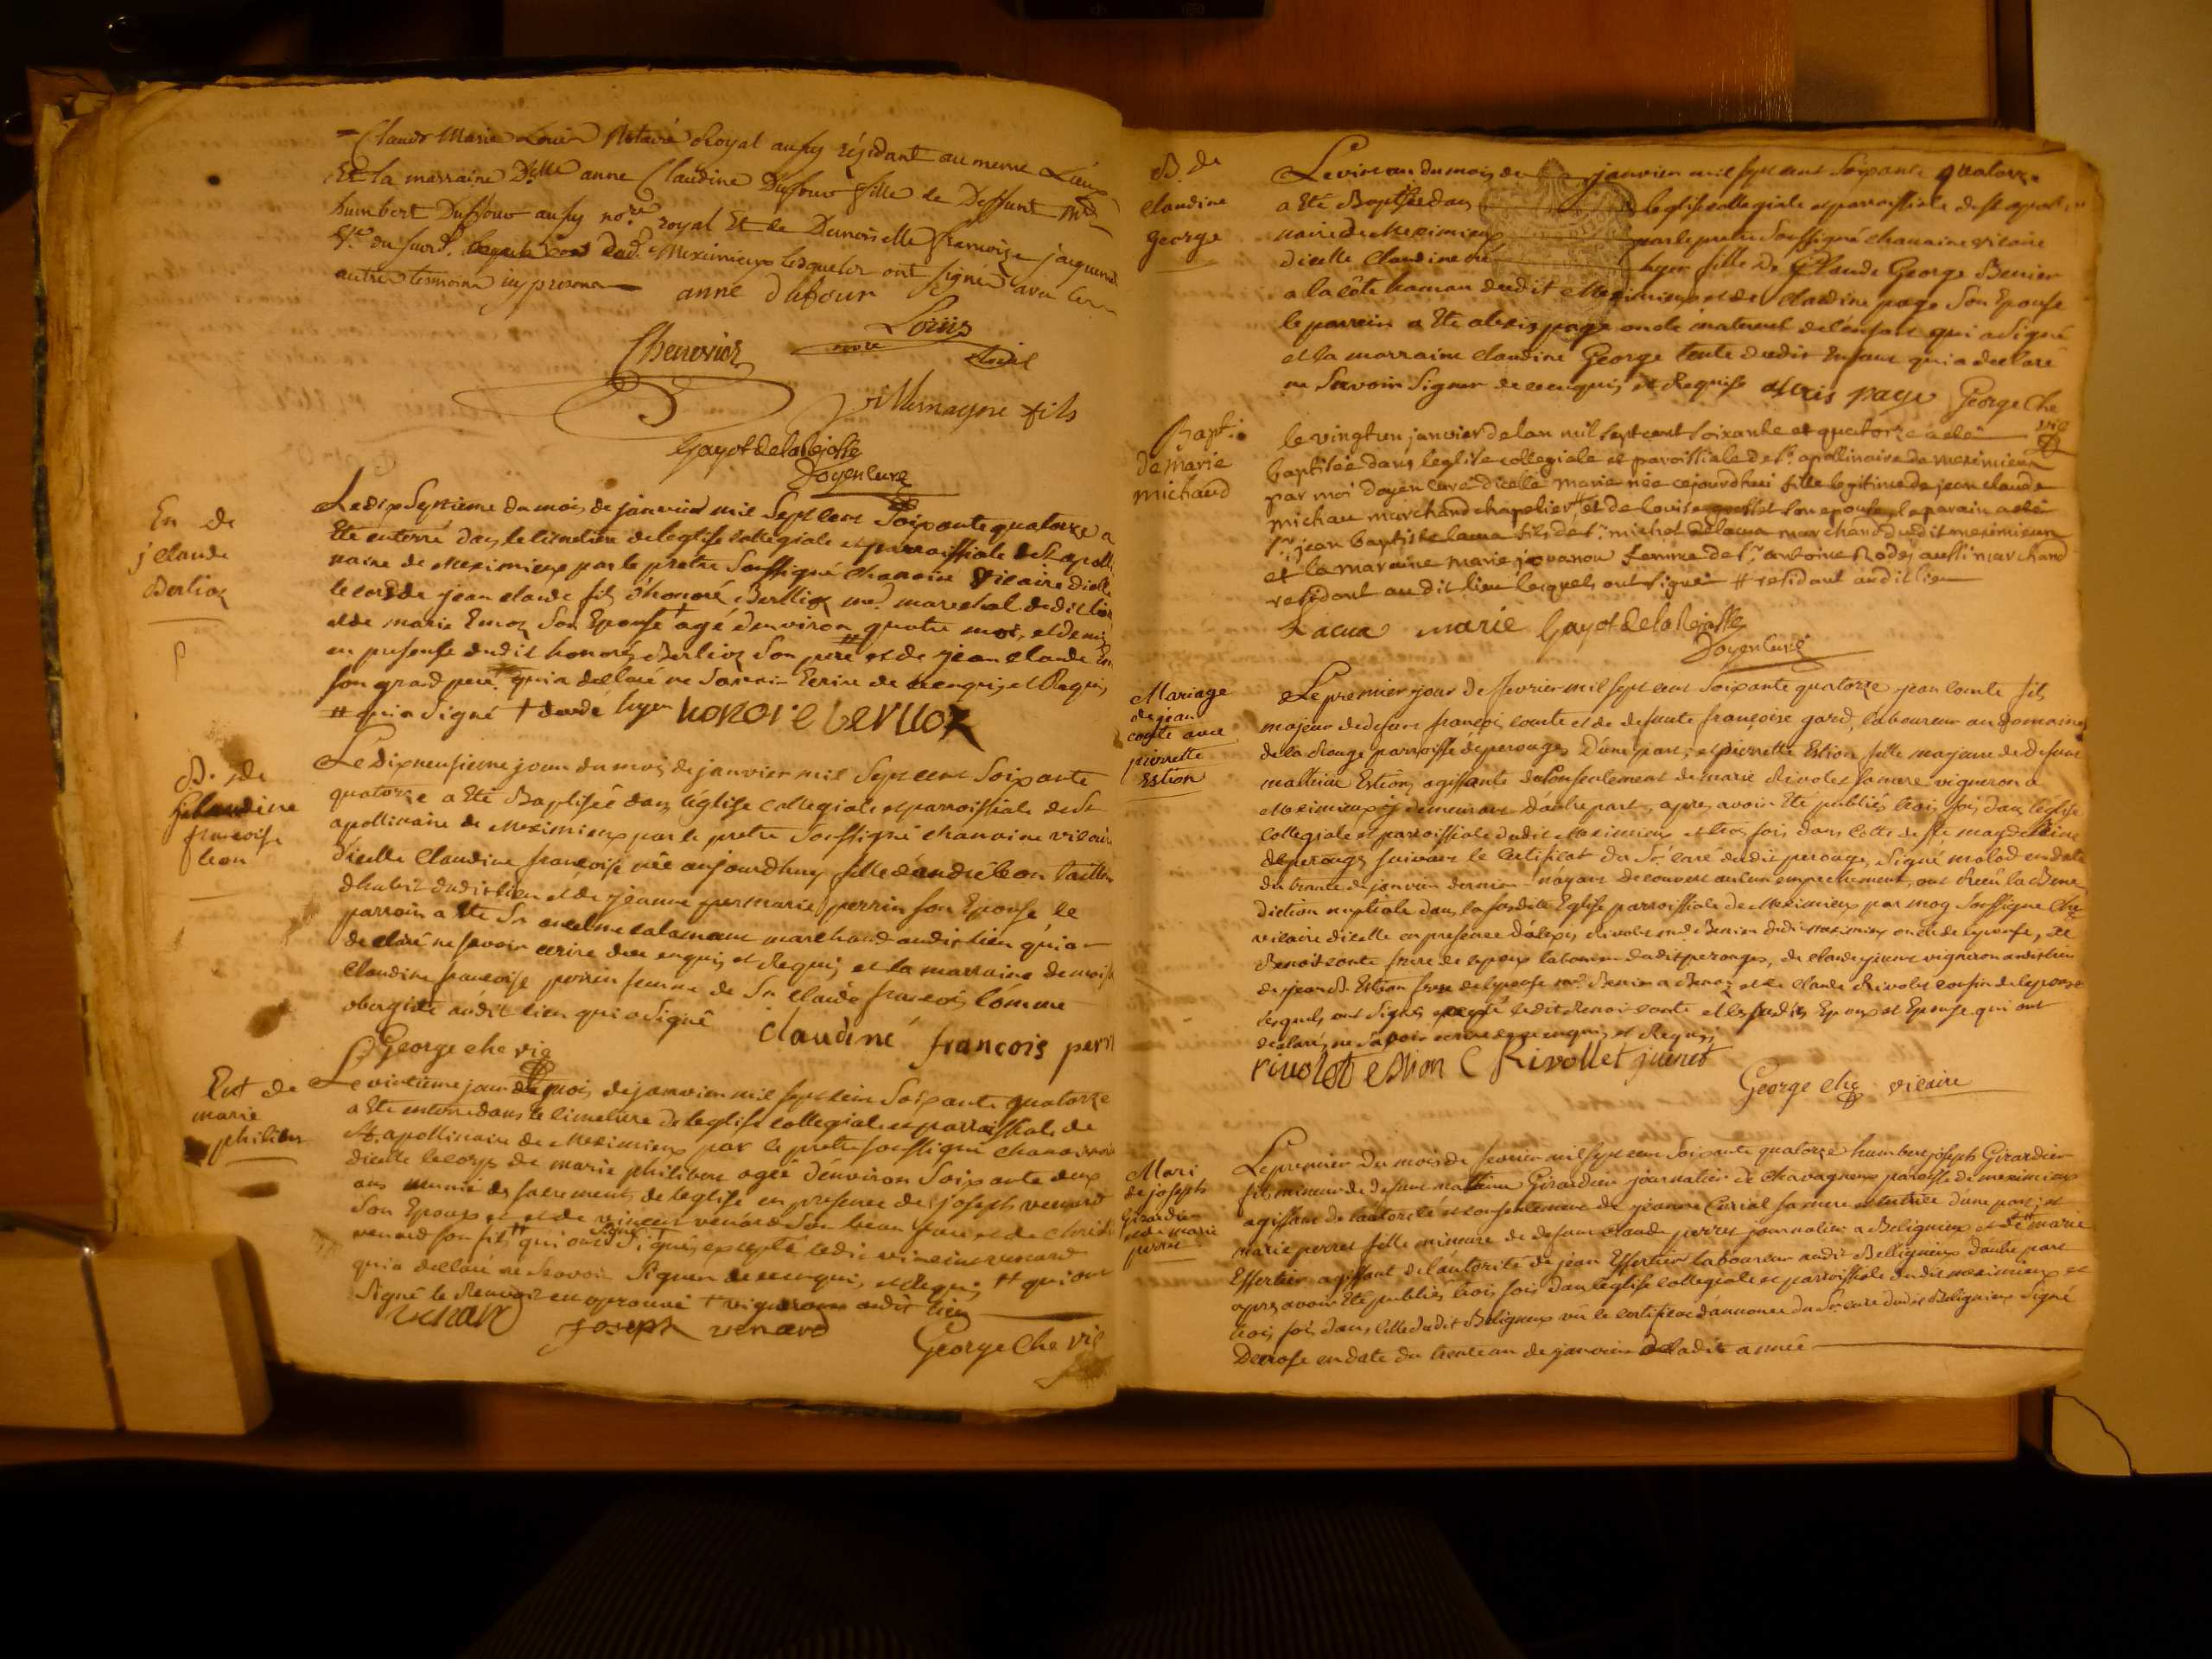 Claude Marie Louis Notaire Royal aussy résidant au meme Lieux
Et la marraine Dlle anne Claudine Dufour fille de Deffunt Me
humbert Dufour aussy nore royal Et de Demoiselle francoise jacquemet
dud. Meximieux lesquelos ont signés avec les
autres tesmoins icy presens anne dufour
Louis
Chenevier
villemagne fils
Gayot delaRejasse
Doyen Curé
En de
j claude
Berlioz
Le dix Septieme du mois de janvier mil Sept cent Soixante quatorze a
Eté enterré dans le cimetiere de leglise collegiale et parroissiale de St apolli
naire de Meximieux par le pretre Soussigné chanoine Vicaire dicelle
le corps de jean claude fils d'honoré Berllioz md. marechal dudit lieu
et de marie Emoz Son Epouse † agé denviron quatre mois et demis
en presense dudit honoré Berlioz Son pere # et de jean claude
son grand pere qui a declaré ne Savoir Ecrire de ce enquis et Requis
# qui a Signé † decedé hyer honore berlioz
B. de
Claudine
francoise
leon
Le Dixneufieme jour du mois de janvier mil Sept cent Soixante
quatorze a Eté Baptisée dans léglise collegiale et parroissiale de St
apollinaire de Meximieux par le pretre Soussigné chanoine vicaire
dicelle Claudine françoise née aujourdhuy fille d'andré leon tailleur
dhabit dudit lieu et de jeanne marie perrin son Epouse, le
parrain a Ete Sr anselme calamant marchand audit lieu qui a
declaré ne savoir ecrire de ce enquis et Requis et la marraine demoiselle
Claudine francoise perrin femme de Sr Claude francois lómme
obergiste audit lieu qui a Signé claudine francois perrin
George che vic
Ent de
marie
philiber
Le vintieme jour du mois de janvier mil Sept cent Soixante quatorze
a Ete enterré dans le cimetiere de leglise collegiale et parroissiale de
St. apollinaire de Meximieux par le pretre soussigné chanoine vicaire
dicelle le corps de marie philibert agée denviron Soixante deux
ans munie des sacrements de leglise en presence de joseph venard
Son Epoux et de vincent venard Son beau frere et de
venard son fils # qui ont Signés excepté ledit vincent venard
qui a declaré ne Scavoir Signer de ce enquis et Requis # qui ont
Signé le Renvoi en aprouvé † vigneron audit lieu
venard joseph venard
George Che vic
B. de
claudine
George
Le vint un du mois de janvier mil sept cent Soixante quatorze
a Eté Baptisée dans leglise collegiale et parroissiale de St apolli
naire de Meximieux par le pretre Soussigné chanoine vicaire
dicelle Claudine née hyer fille De Claude George Benier
a la côte haman dudit Meximieux et de Claudine page Son Epouse
le parrein a Eté alexis page oncle maternel de lenfant qui a Signé
et la marraine claudine George tente dudit Enfant qui a declaré
ne Savoir Signer de ce enquis et Requise alexis page George Che
vic
Bapt.
de marie
michaud
le vingt un janvier de lan mil sept cent soixante et quatorze a été
baptisée dans leglise collegiale et paroissiale de st. apollinaire de meximieux
par moi doyen curé dicelle marie née cejourdhui fille legitime de jean claude
michau marchand chapelier # et de louise son epouse, le parain a été
Sr. jean baptiste lacua fils de Sr. michel delacua marchand dudit meximieux
et la maraine marie jovanon femme de Sr. antoine Rodes aussi marchand
residant audit lieu lesquels ont signé # residant audit lieu
Lacua marie Gayot delaRejasse
Doyen Curé
Mariage
de jean
comte avec
pierrette
Estion
Le premier jour de fevrier mil sept cent Soixante quatorze jean comte fils
majeur de defunt françois comte et de defunte françoise gard, laboureur au domaine
de la Rouge parroisse de perouges D'une part, et pierrette Estion fille majeure de defunt
mathieu Estion agissante du Consentement de marie Rivolet sa mere vigneron a
Meximieux y demeurant dautre part, apres avoir Eté publiés trois fois dans léglise
Collegiale et parroissiale dudit Meximieux et trois fois dans celle de Ste magdeleine
de perouges suivant le certificat du Sr. curé dudit perouges Signé molod en date
du trente de janvier dernier n'ayant decouvert aucun empechement, ont Reçu la Bene
diction nuptiale dans la susdite Eglise parroissiale de Meximieux par moy Soussigné che
vicaire dicelle en presence d'alexis Rivolet md. Benier dudit meximieux oncle de lepouse, de
Benoit comte frere de lepoux laboureur dudit perouges, de claude juenet vigneron audit lieu
de jean B. Estion frere de lepouse md. Benier a et de claude Rivolet cousin de lepouse
lesquels ont Signés excepté ledit Benoit comte et les susdits Epoux et Epouse qui ont
declarés ne Savoir ecrire de ce enquis et Requis
rivolet estion C Rivollet juenet
George che vicaire
Mari
de joseph
Girardier
et de marie
perret
Le premier du mois de fevrier mil sept cent Soixante quatorze humbert joseph Girardier
fils mineur de defunt mathieu Girardier journalier de Chavagneux paroisse de meximieux
agissant de l'autorité et consentement de jeanne Curial sa mere et tutrice d'une part, et
marie perret fille mineure de defunt claude perret journalier a Beligneux et de marie
Effertier agissant de l'autorité de jean Effertier laboureur audit Belligneux d'autre part
apres avoir Eté publiés trois fois dans leglise collegiale et parroissiale dudit meximieux et
trois fois dans celle dudit Beligneux vû le certificat d'annonce du Sr. curé dudit Beligneux Signé
Decrose en date du trente un de janvier de ladite année